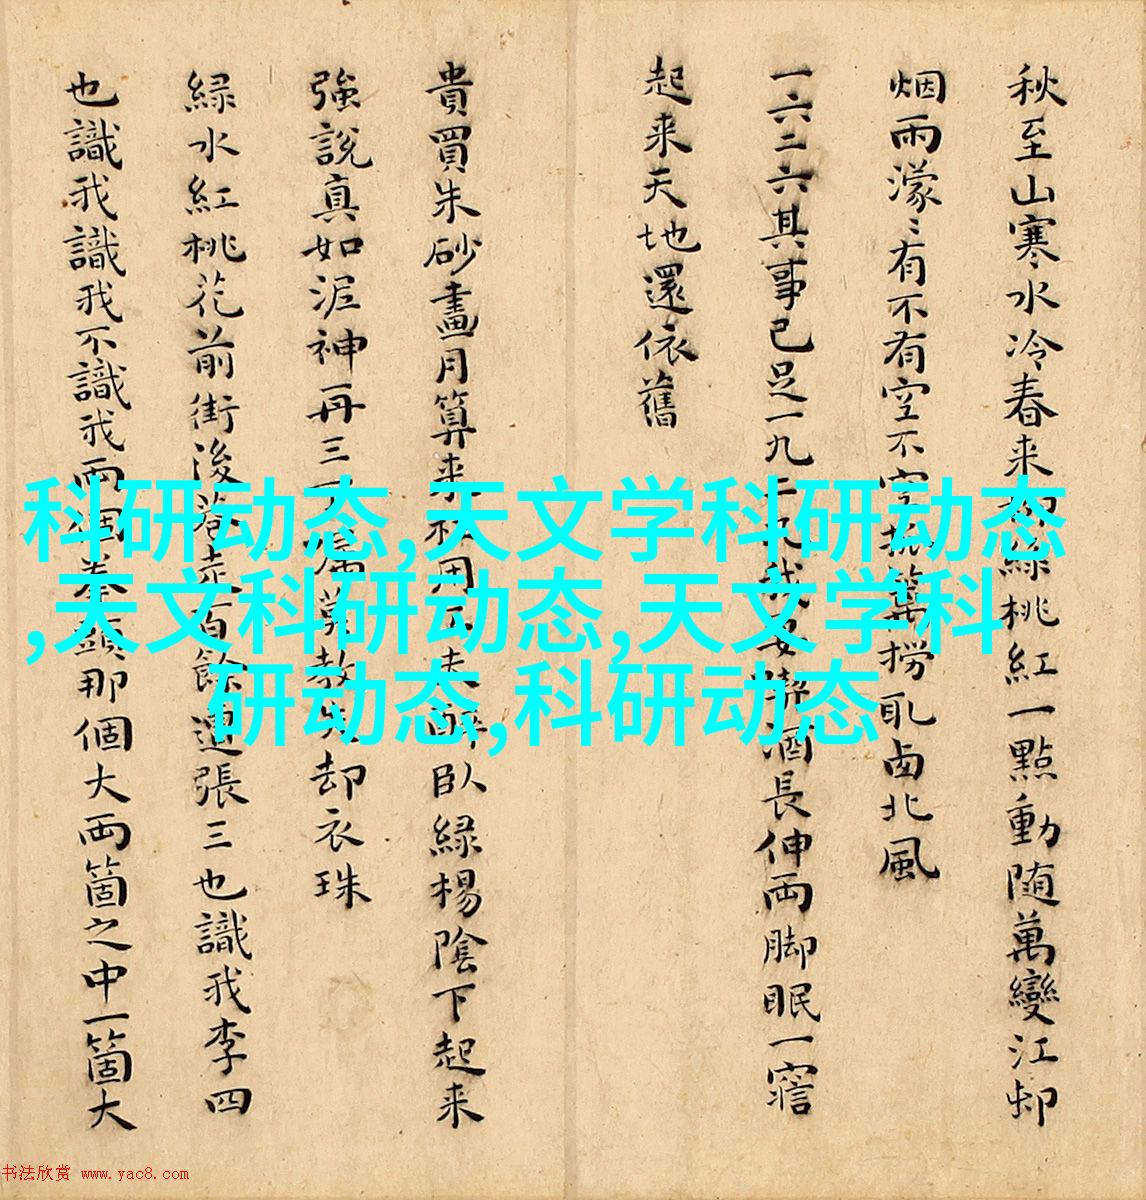 秋至山寒水冷春来柳綠桃紅一點動随萬變江邨
烟雨濛〻有不有空不空笊籬撈取西北風
一六二六其事已足一九二九我要喫酒長伸兩脚眠一寤
起来天地還依舊
貴買朱砂畫月算来枉用工夫醉臥緑楊陰下起来
強説真如泥神再三 嘱莫教失却衣珠
緑水紅桃花前街後巷走百餘遭張三也識我李四
也識我識我不識我兩個拳頭那個大兩箇之中一箇大
科研动态,天文学科研动态
,天文科研动态,天文学科
研动态,科研动态
书法欣赏 www.yac8.com